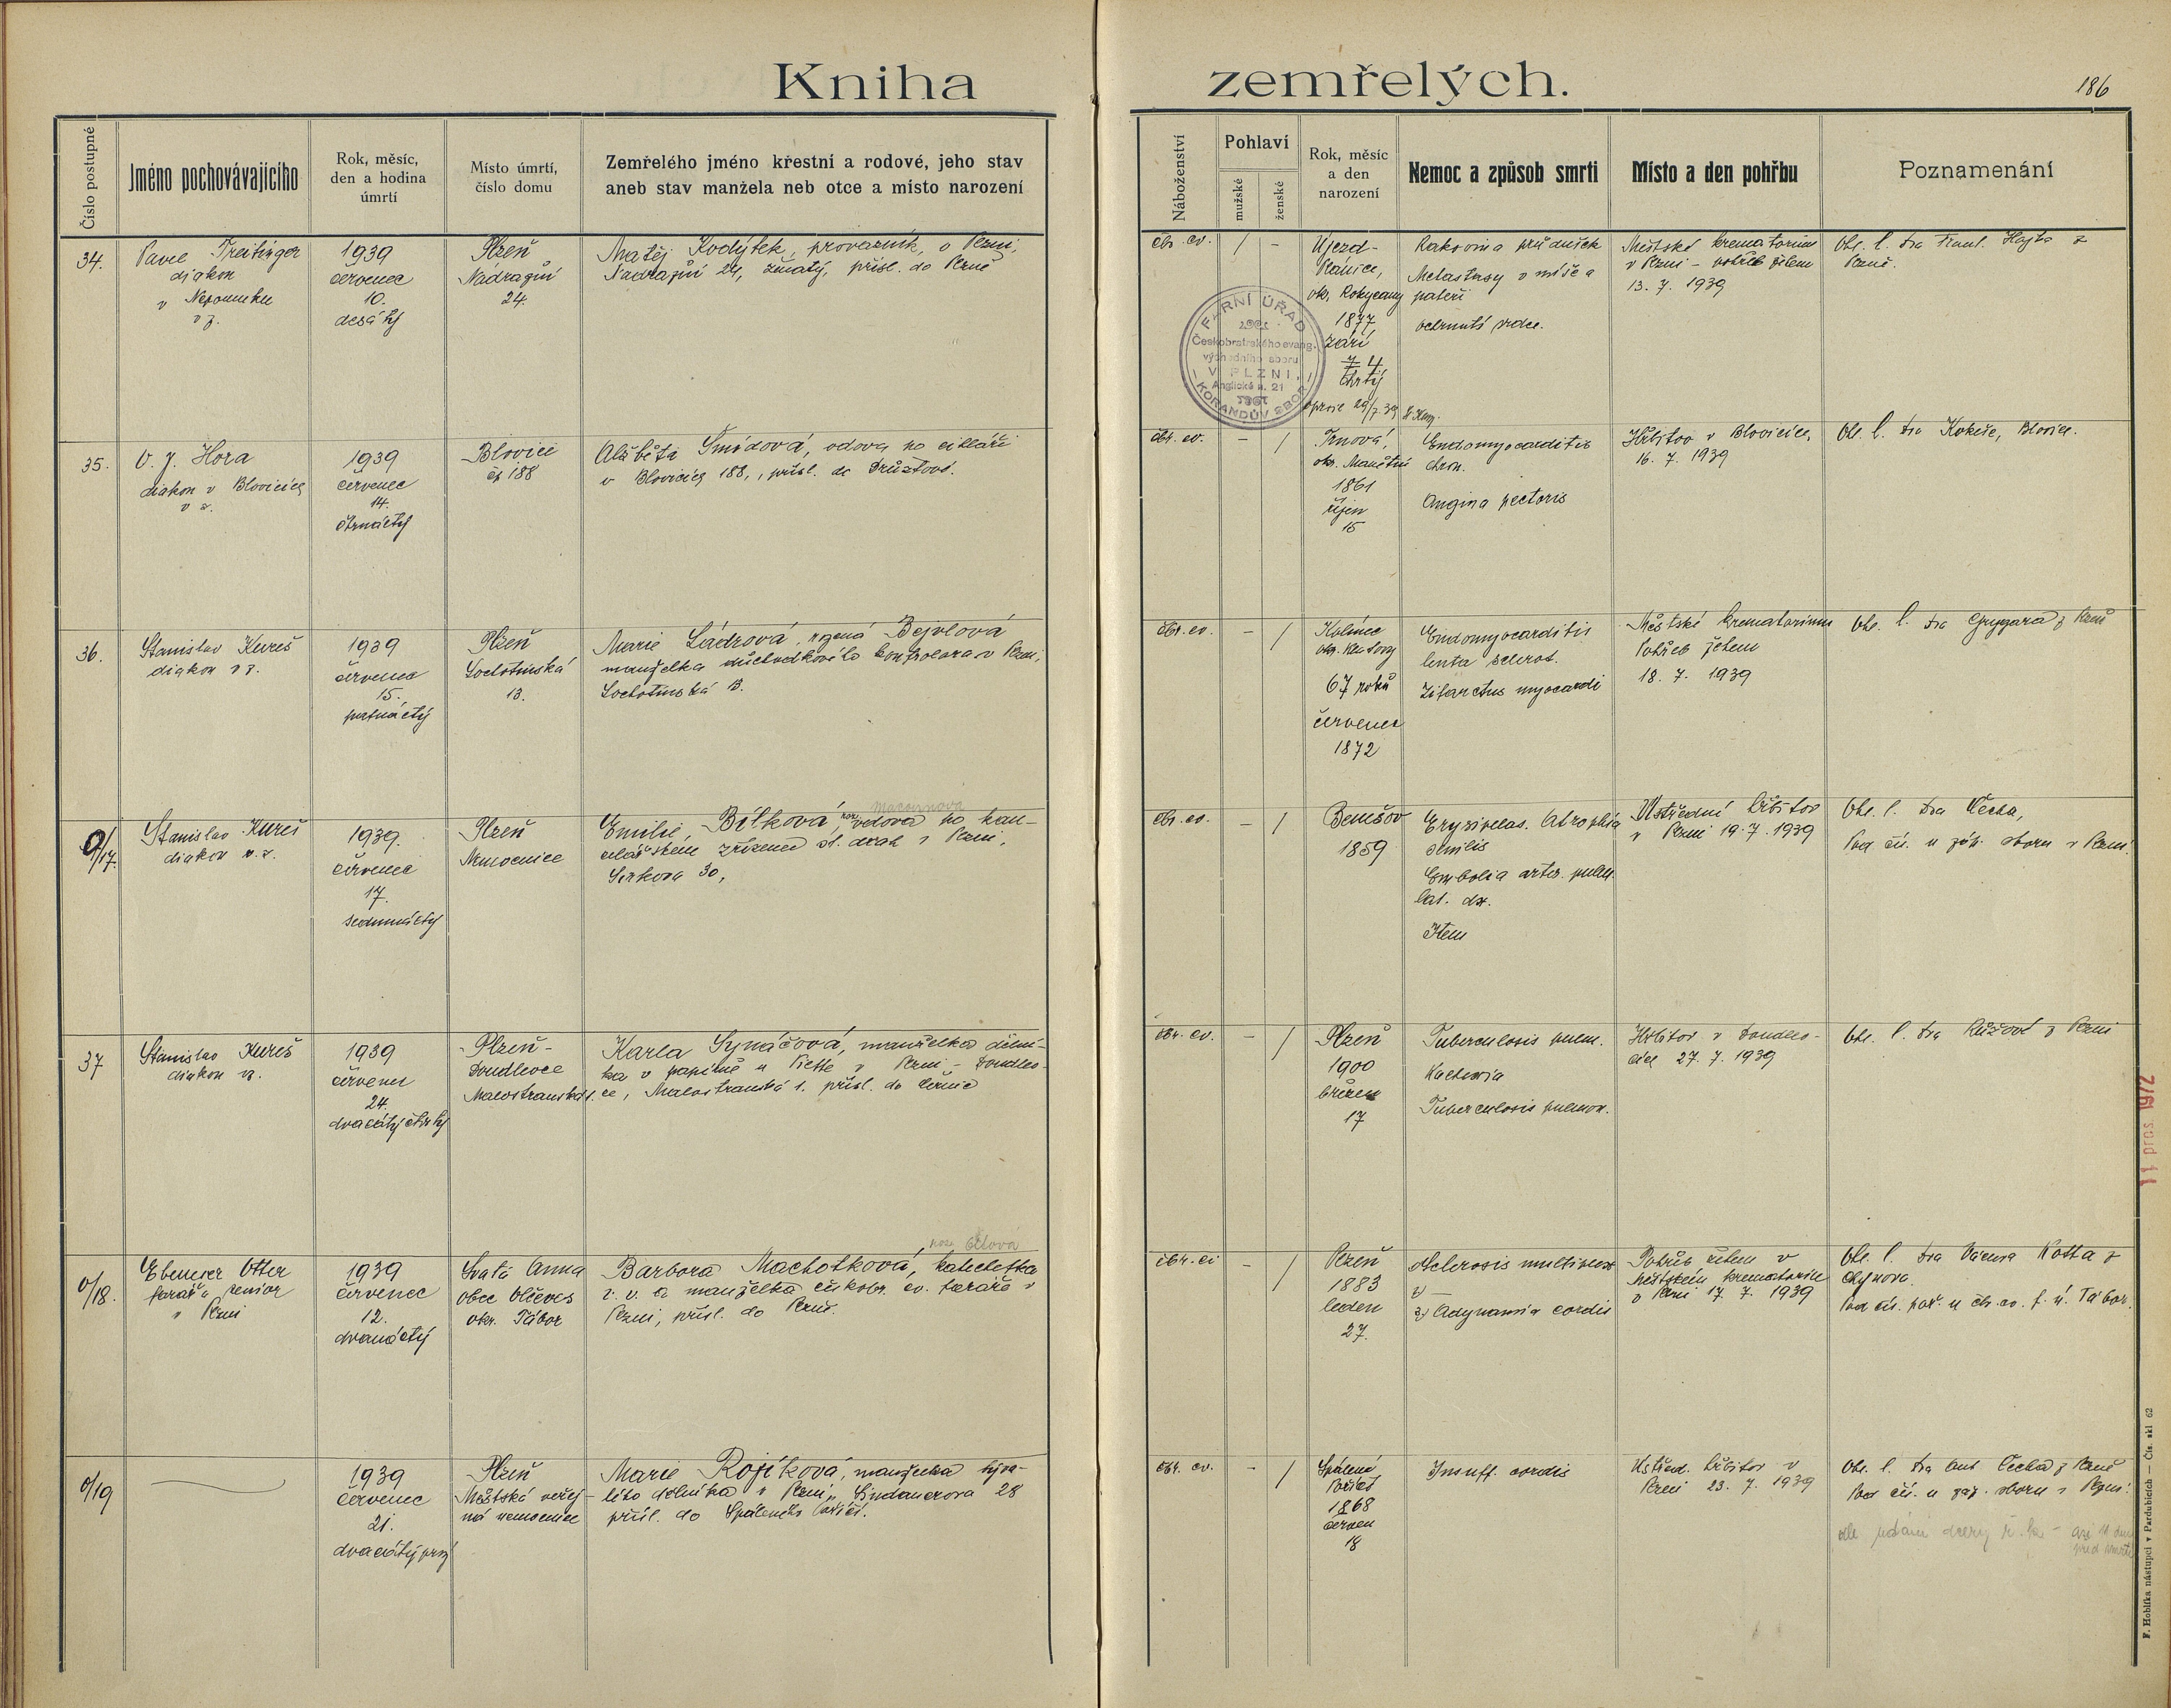 Kniha zemřelých.
186
Číslo postupné
Jméno pochovávajícího
Rok, měsíc,
den a hodina
úmrtí
Místo úmrtí,
číslo domu
Zemřelého jméno křestní a rodové, jeho stav
aneb stav manžela neb otce a místo narození
Náboženství
Pohlaví
mužské
ženské
Rok, měsíc
a den
narození
Nemoc a způsob smrti
Místo a den pohřbu
Poznamenání
34.
Pavel Treitinger
diakon
v Nepomuku
v z.
1939
červenec
10.
desátý
Plzeň
Nádražní
24.
Matěj Kodýtek, provazník, v Plzni,
Nádražní 24, ženatý, přísl. do Plzně
čbr. ev.
/
-
Újezd-
okr. Rokycany
1877
září
4
čtvrtý
Rakovina průdušek
Metastasy v míše a
páteři
ochrnutí srdce.
Městské krematorium
v Plzni - pohřeb žehem
13. 7. 1939
Ohl. l. dra Frant. Hajta z
Plzně.
FARNÍ ÚŘAD
Českobratrského evang.
východního sboru
V PLZNI,
Anglické n. 21
KORANDŮV SBOR
35.
V. J. Hora
diakon v Blovicích
v z.
1939
červenec
14.
čtrnáctý
Blovice
čp 188
Alžběta Šmídová, vdova po cihláři
v Blovicích 188, přísl. do
čbr. ev.
-
/
Trnová,
okr. Manětín
1861
říjen
15
Endomyocarditis
chron.
Angina pectoris
Hřbitov v Blovicích,
16. 7. 1939
Ohl. l. dra Kokeše, Blovice.
36.
Stanislav Kureš
diakon v z.
1939
červenec
15.
patnáctý
Plzeň
Lochotínská
13.
Marie Ládrová, rozená Bejvlová
manželka důchodkového kontrolora v Plzni,
Lochotínská 13.
čbr. ev.
-
/
Kolinec
okr. Klatovy
67 roků
červenec
1872
Endomyocarditis
lenta sclerot.
Infarctus myocardi
Městské krematorium
Pohřeb žehem
18. 7. 1939
Ohl. l. dra z Plzně
0/17.
Stanislav Kureš
diakon v. z.
1939.
červenec
17.
sedmnáctý
Plzeň
Nemocnice
Emilie Bílková, vdova po kan-
celářském zřízenci st. drah v Plzni,
Sirkova 30,
čbr. ev.
-
/
Benešov
1859
Erysipelas. Atrophia
senilis
Embolia arter. pulm.
lat. dx.
Item
Ústřední hřbitov
v Plzni 19. 7. 1939
Ohl. l. dra Čecha,
Pod čís. u záp. sboru v Plzni.
37
Stanislav Kureš
diakon vz.
1939
červenec
24.
dvacátý čtvrtý
Plzeň-
Doudlevce
Malostranská 1.
Karla Synáčová, manželka dělní-
ka v papírně u Piette v Plzni - Doudlev-
ce, Malostranská 1. přísl. do Černic
čbr. ev.
-
/
Plzeň
1900
březen
17
Tuberculosis pulm.
Kachexia
Tuberculosis pulmon.
Hřbitov v Doudlev-
cích 27. 7. 1939
Ohl. l. dra z Plzni
0/18.
Ebenezer Otter
farář a senior
v Plzni
1939
červenec
12.
dvanáctý
Svatá Anna
obec
okr. Tábor
roz.
Barbora Machotková, katechetka
v. v. a manželka čeßkobr. ev. faráře v
Plzni, přísl. do Plzně.
čbr. ev
-
/
Plzeň
1883
leden
27.
Sclerosis multiplex
2) Adynamia cordis
Pohřeb žehem v
městském krematoriu
v Plzni 17. 7. 1939
Ohl. l. dra Václava Kotta z
Chýnova.
Pod čís. poř. u čb. ev. f. ú. Tábor.
0/19
1939
červenec
21.
dvacátý prvý
Plzeň
Městská veřej-
ná nemocnice
Marie Rojíková, manželka býva-
lého dělníka v Plzni, Lindauerova 28
přísl. do Spáleného Poříčí.
čbr. ev.
-
/
Spálené
Poříčí
1868
červen
18
Insuff. cordis
Ústřed. hřbitov v
Plzni 23. 7. 1939
Ohl. l. dra Ant. Čecha z Plzně
Pod čís. u záp. sboru v Plzni.
dle udání dcery ř. k. - asi 14 dní
před smrtí
11 pros. 1972
F. Hoblíka nástupci v Pardubicích — Čís. skl 62